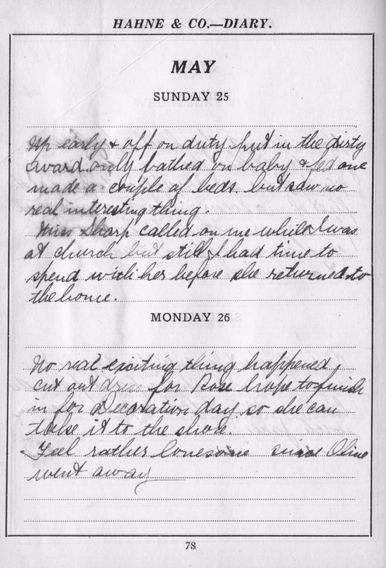 HAHNE & CO.—DIARY.
MAY
SUNDAY 25
Up early & off on duty, put in the dirty
ward. only bathed on baby & fed one
made a couple of beds. but saw no
real interesting thing.
Miss Sharp called on me while I was
at church but still I had time to
spend with her before she returned to
the home.
MONDAY 26
No real exciting thing happened,
cut out dress for Rose hope to finish
in for Decoration day so she can
take it to the shore.
Feel rather lonesome since Oline
went away
78